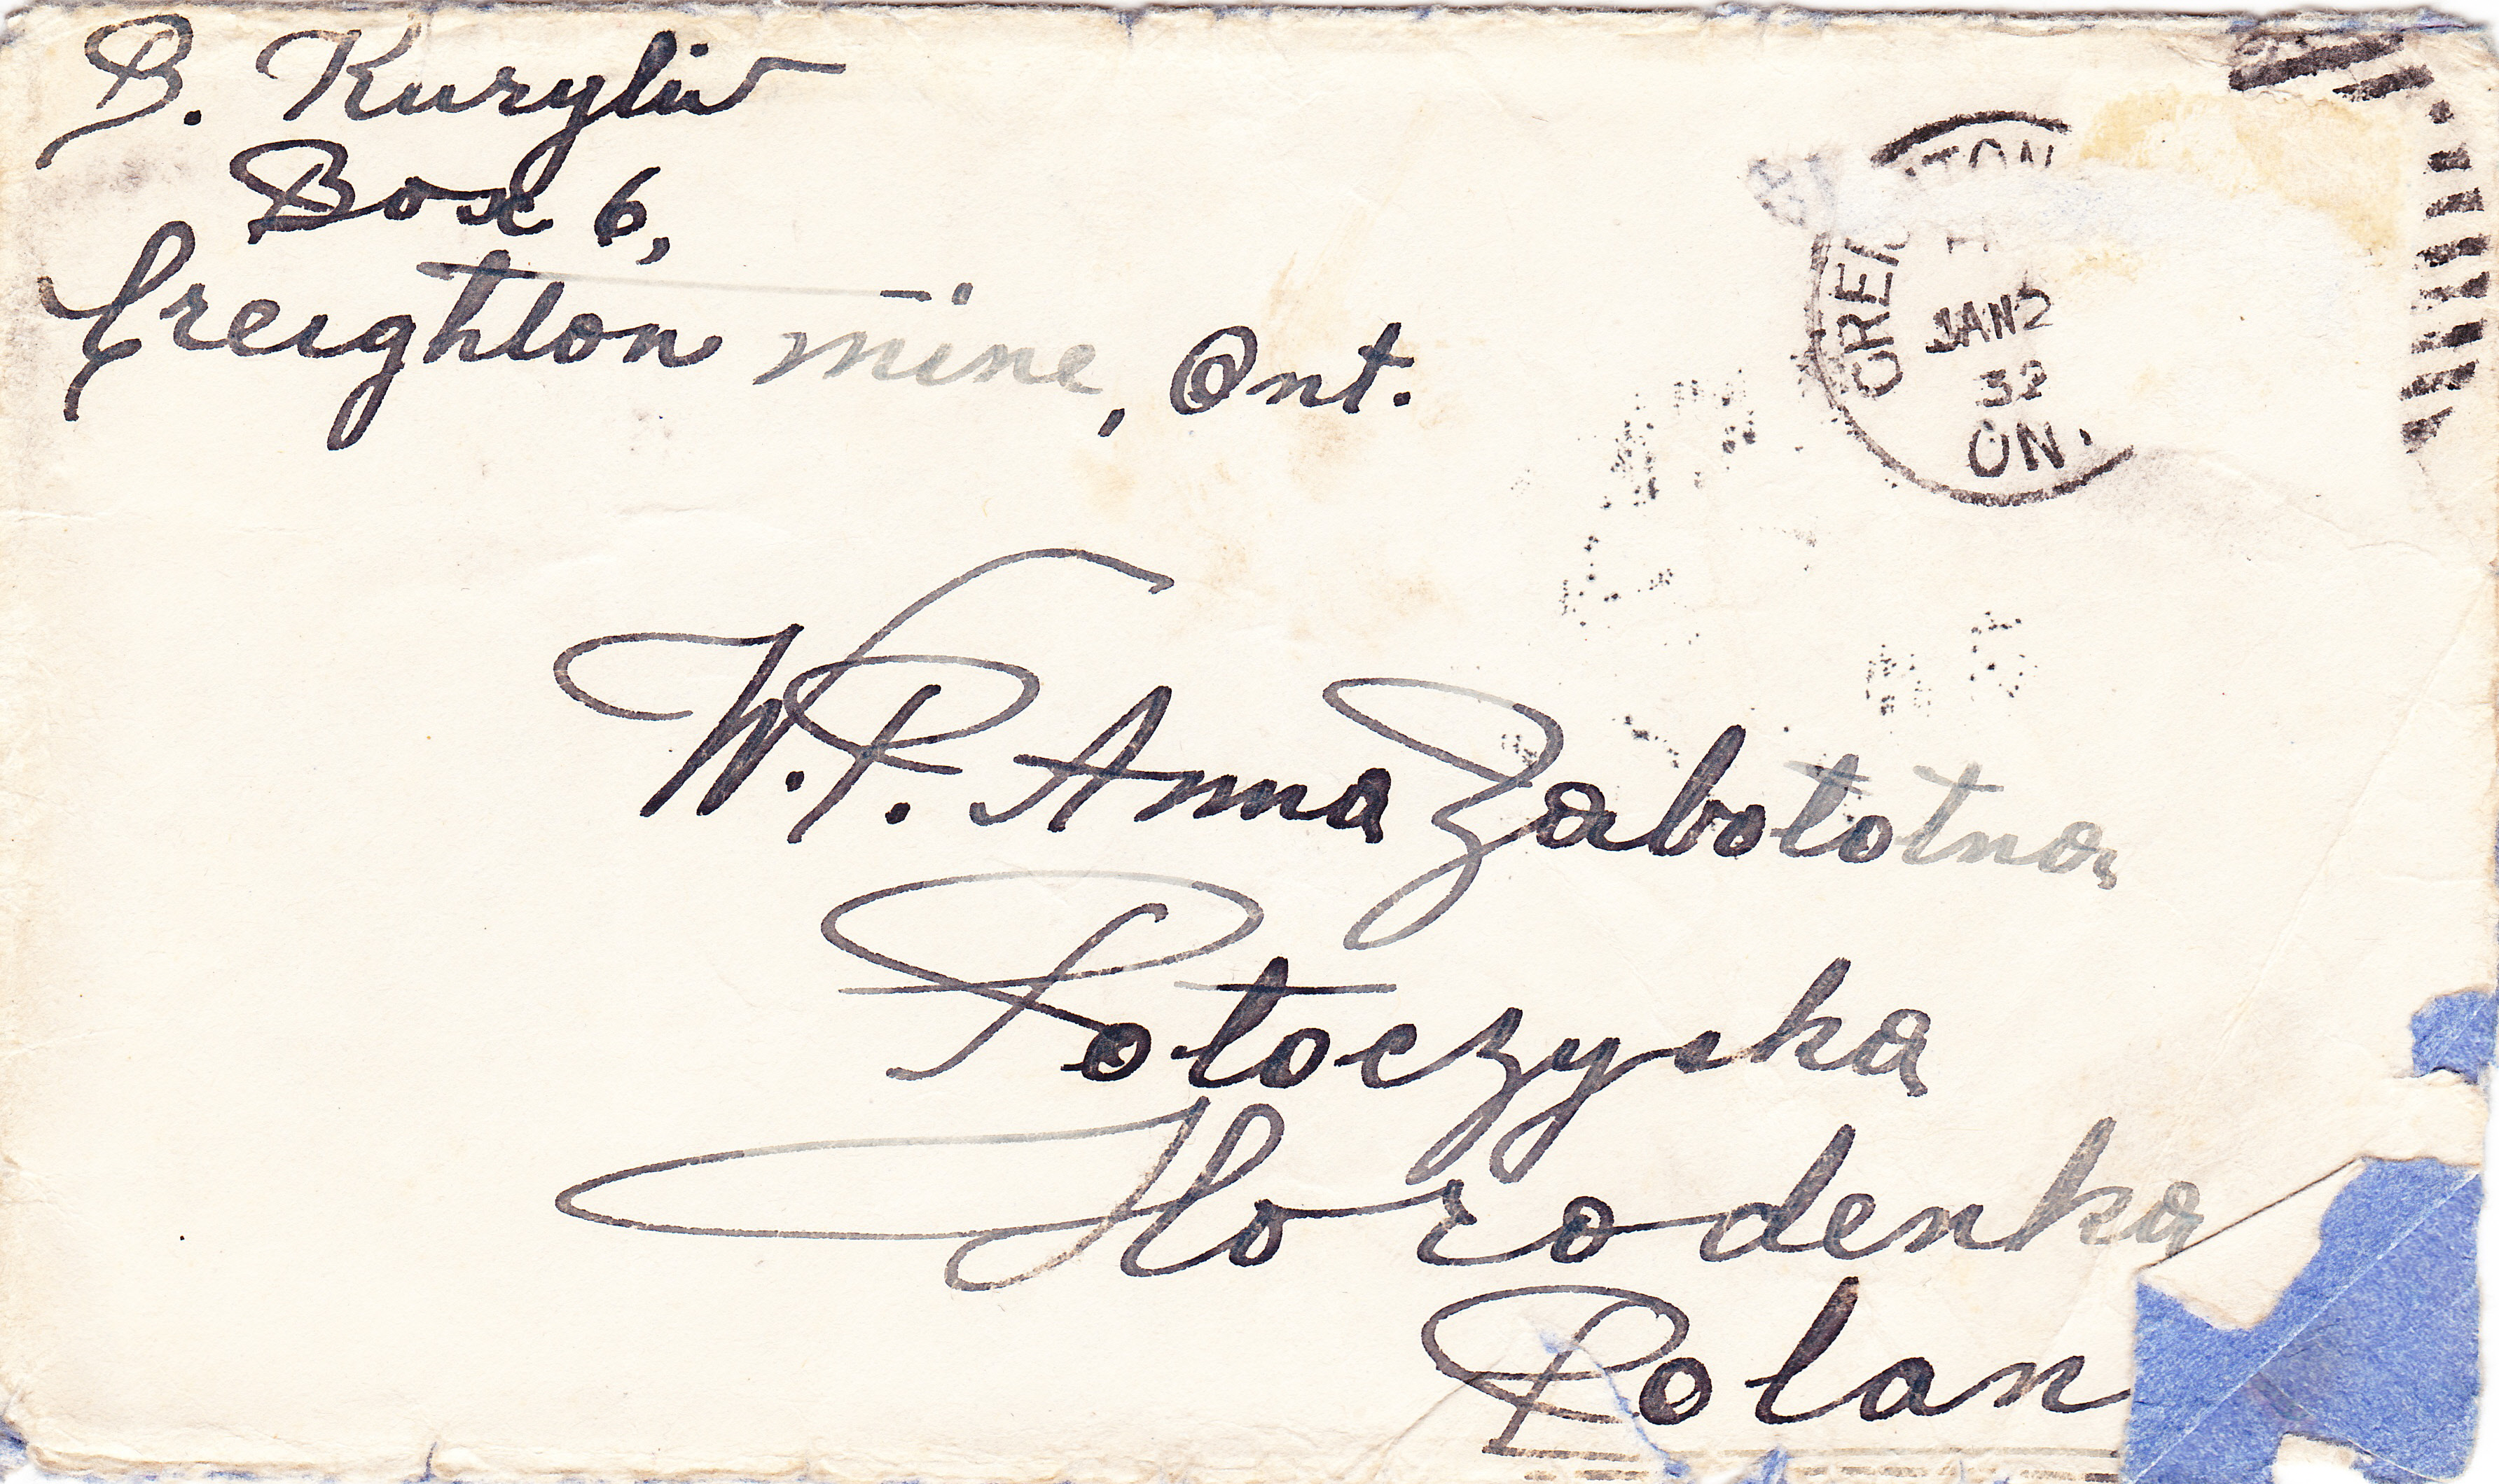 B. Kuryliw
Box 6,
Creighton mine, Ont.
JAN 2
32
ON.
W.P. Anna Zabototna
Potoczyska
Horodenka
Polan